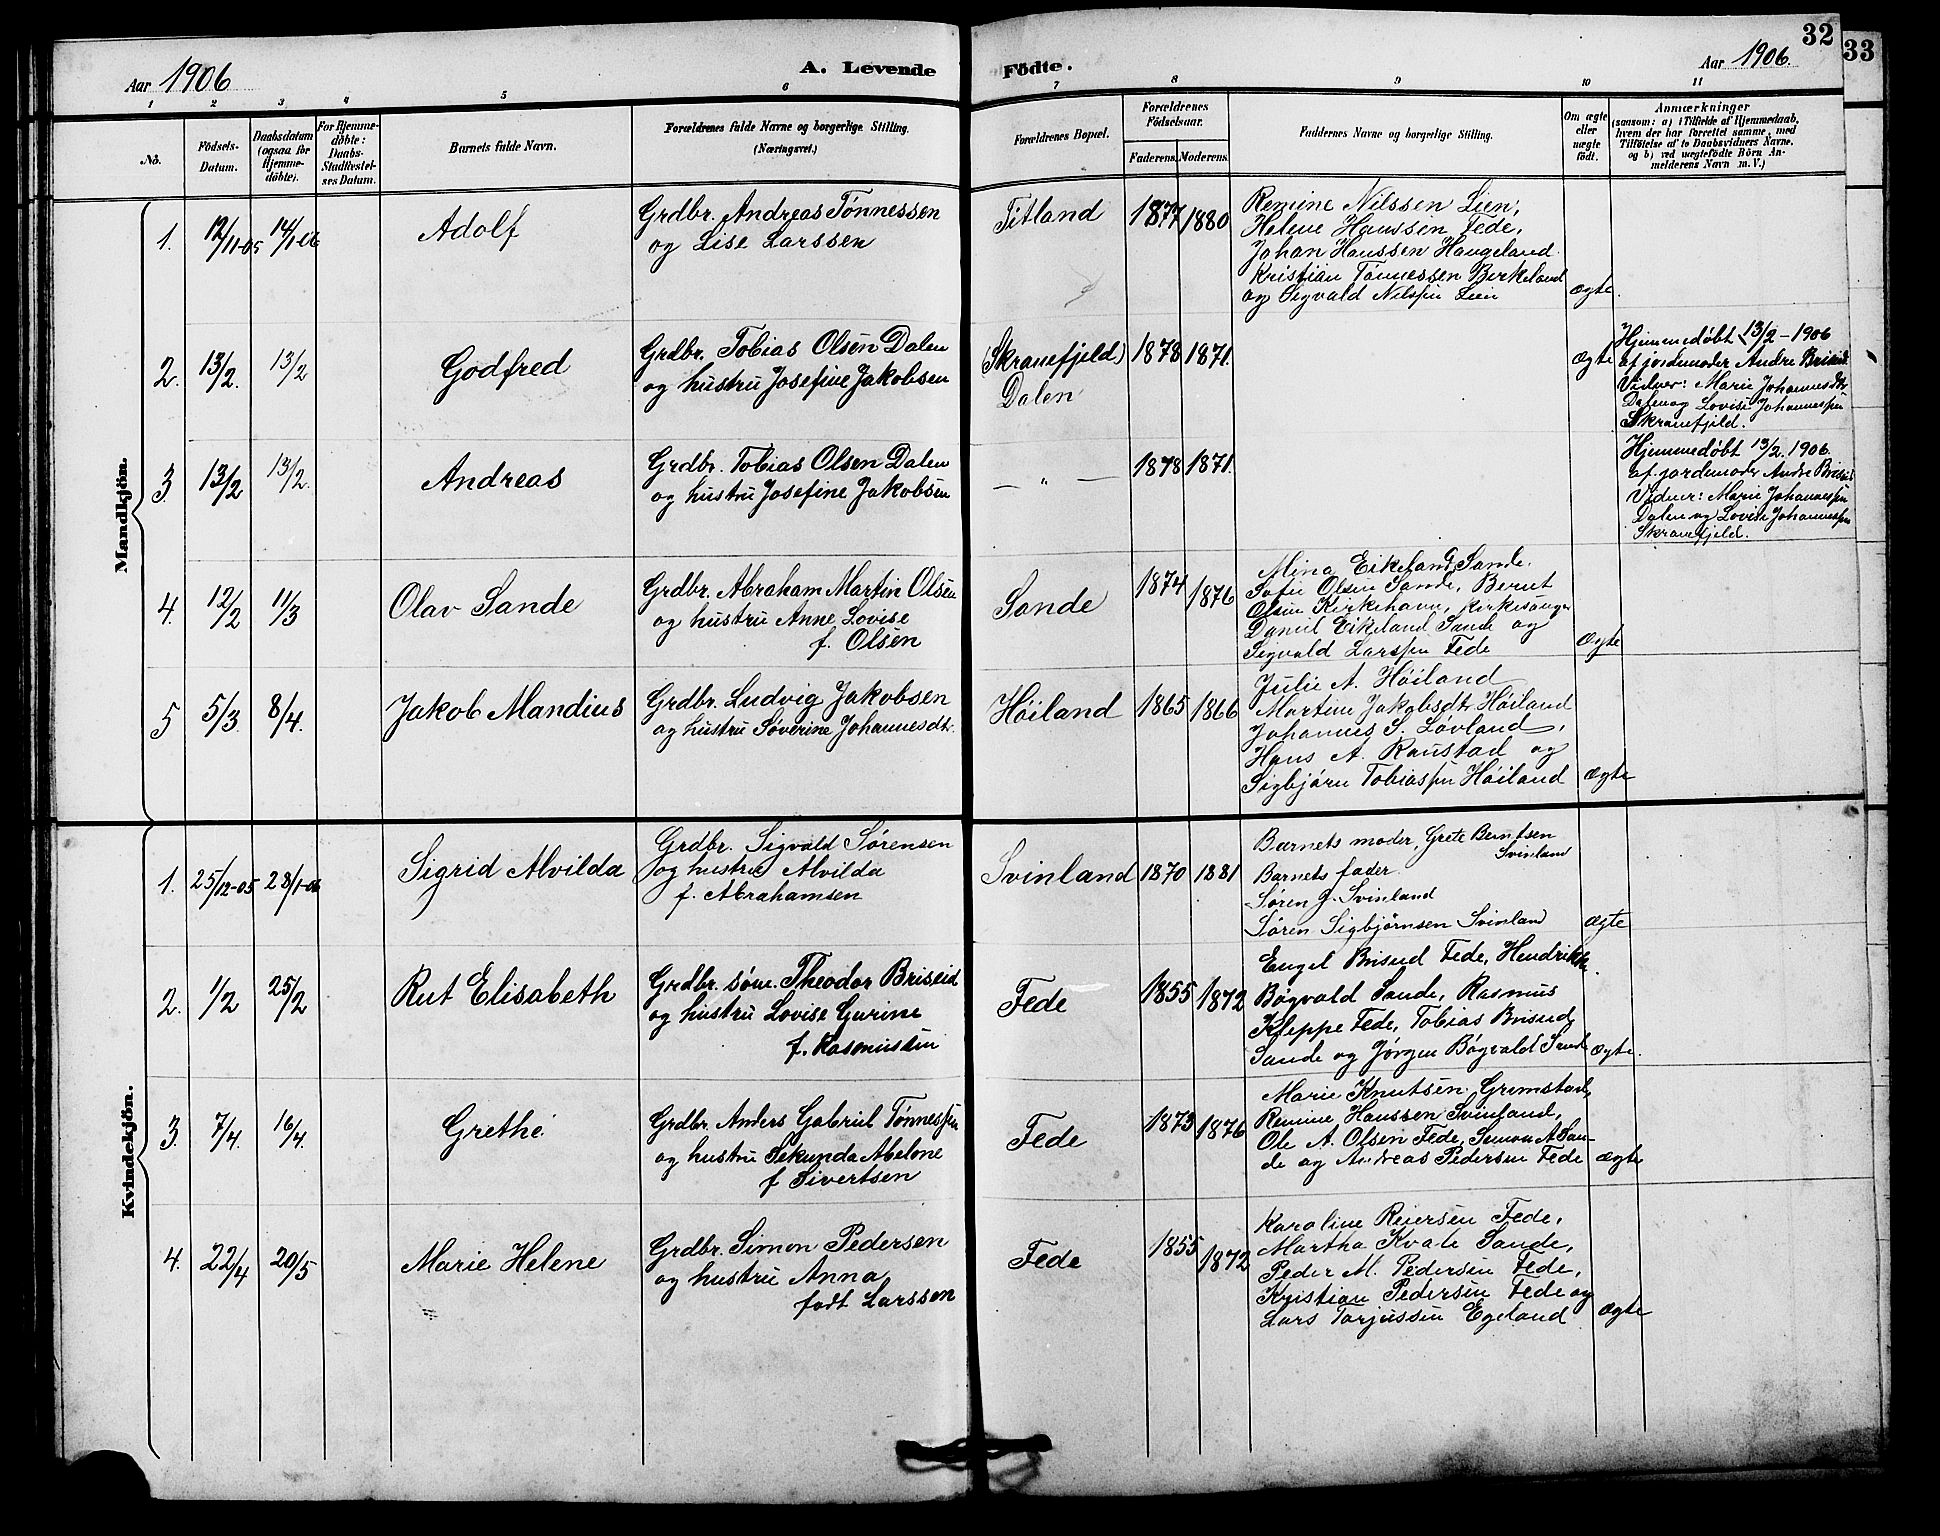 Aar 1906
A. Levende
Födte.
Aar 1906.
32
33
1 2 3 4 5 6 7 8 9 10 11
No.
Födsels-
Datum.
Daabsdatum
(ogsaa for
Hjemme-
döbte).
For Hjemme-
döbte:
Daabs-
Stadfæstel-
ses Datum.
Barnets fulde Navn.
Forældrenes fulde Navne og borgerlige Stilling.
(Næringsvei.)
Forældrenes Bopæl.
Forældrenes
Födselsaar.
Faderens.
Moderens.
Faddernes Navne og borgerlige Stilling.
Om ægte
eller
uægte
født.
Anmærkninger
(saasom: a) i Tilfælde af Hjemmedaab,
hvem der har forrettet samme, med
Tilföielse af to Daabsvidners Navne,
og b) ved uægtefödte Börn An-
melderens Navn m. V.)
Mandkjön.
1. 12/11-05 14/1-06 Adolf
Grdbr. Andreas Tønnessen
og Lise Larssen
Titland 1877 1880
Remine Nilssen Lien,
Helene Hanssen Fede,
Johan Hanssen Haugeland
Kristian Tønnessen Birkeland
og Sigvald Nilssen Lien
ægte.
2. 13/2. 13/2 Godfred
Grdbr. Tobias Olsen Dalen
og hustru Josefine Jakobsen
(Skranefjeld)
Dalen
1878 1871.
ægte
Hjemmedøbt 13/2-1906
af jordemoder Andre Briseid
Vidner: Marie Johannesdtr
Dalen og Lovise Johannessen
Skranefjeld.
3 13/2 13/2. Andreas
Grdbr. Tobias Olsen Dalen
og hustru Josefine Jakobsen
— „ — 1878 1871.
Hjemmedøbt 13/2. 1906.
af jordemoder Andre Briseid
Vidner: Marie Johannessen
Dalen og Lovise Johannessen
Skranefjeld.
4. 12/2 11/3 Olav Sande
Grdbr. Abraham Martin Olsen
og hustru Anne Lovise
f. Olsen
Sande 1874 1876
Mina Eikeland Sande.
Sofie Olsen Sande, Bernt
Olsen Kirkehavn, kirkesanger
Daniel Eikeland Sande og
Sigvald Larssen Fede
Ægte
5 5/3. 8/4. Jakob Mandius
Grdbr. Ludvig Jakobsen
og hustru Søverine Johannesdtr.
Høiland 1865 1866
Julie A. Høiland
Martine Jakobsdtr Høiland
Johannes S. Løvland,
Hans A. Raustad og
Sigbjørn Tobiassen Høiland
ægte
Kvindekjön.
1. 25/12-05 28/1-06 Sigrid Alvilda
Grdbr. Sigvald Sørensen
og hustru Alvilda
f. Abrahamsen
Svinland 1870 1881
Barnets moder, Grete Berntsen
Svinland
Barnets fader.
Søren G. Svinland
Søren Sigbjørnsen Svinland
ægte
2. 1/2 25/2 Rut Elisabeth
Grdbr. søn. Theodor Briseid
og hustru Lovise Gurine
f. Rasmussen
Fede 1855 1872
Engel Briseid Fede, Hendrikke
Bøgvald Sande, Rasmus
Kleppe Fede, Tobias Briseid
Sande og Jørgen Bøgvald Sande
ægte.
3. 7/4. 16/4. Grethe
Grdbr. Anders Gabriel Tønnessen
og hustru Sekunda Abelone
f Sivertsen
Fede 1873 1876
Marie Knutsen Grimstad,
Remine Hanssen Svinland,
Ole A. Olsen Fede, Simon A San-
de og Andreas Pedersen Fede
ægte
4. 22/4 20/5 Marie Helene
Grdbr. Simon Pedersen
og hustru Anna
født Larssen
Fede 1855 1872
Karoline Reiersen Fede,
Martha Kvale Sande,
Peder M. Pedersen Fede,
Kristian Pedersen Fede og
Lars Torjussen Egeland
Ægte